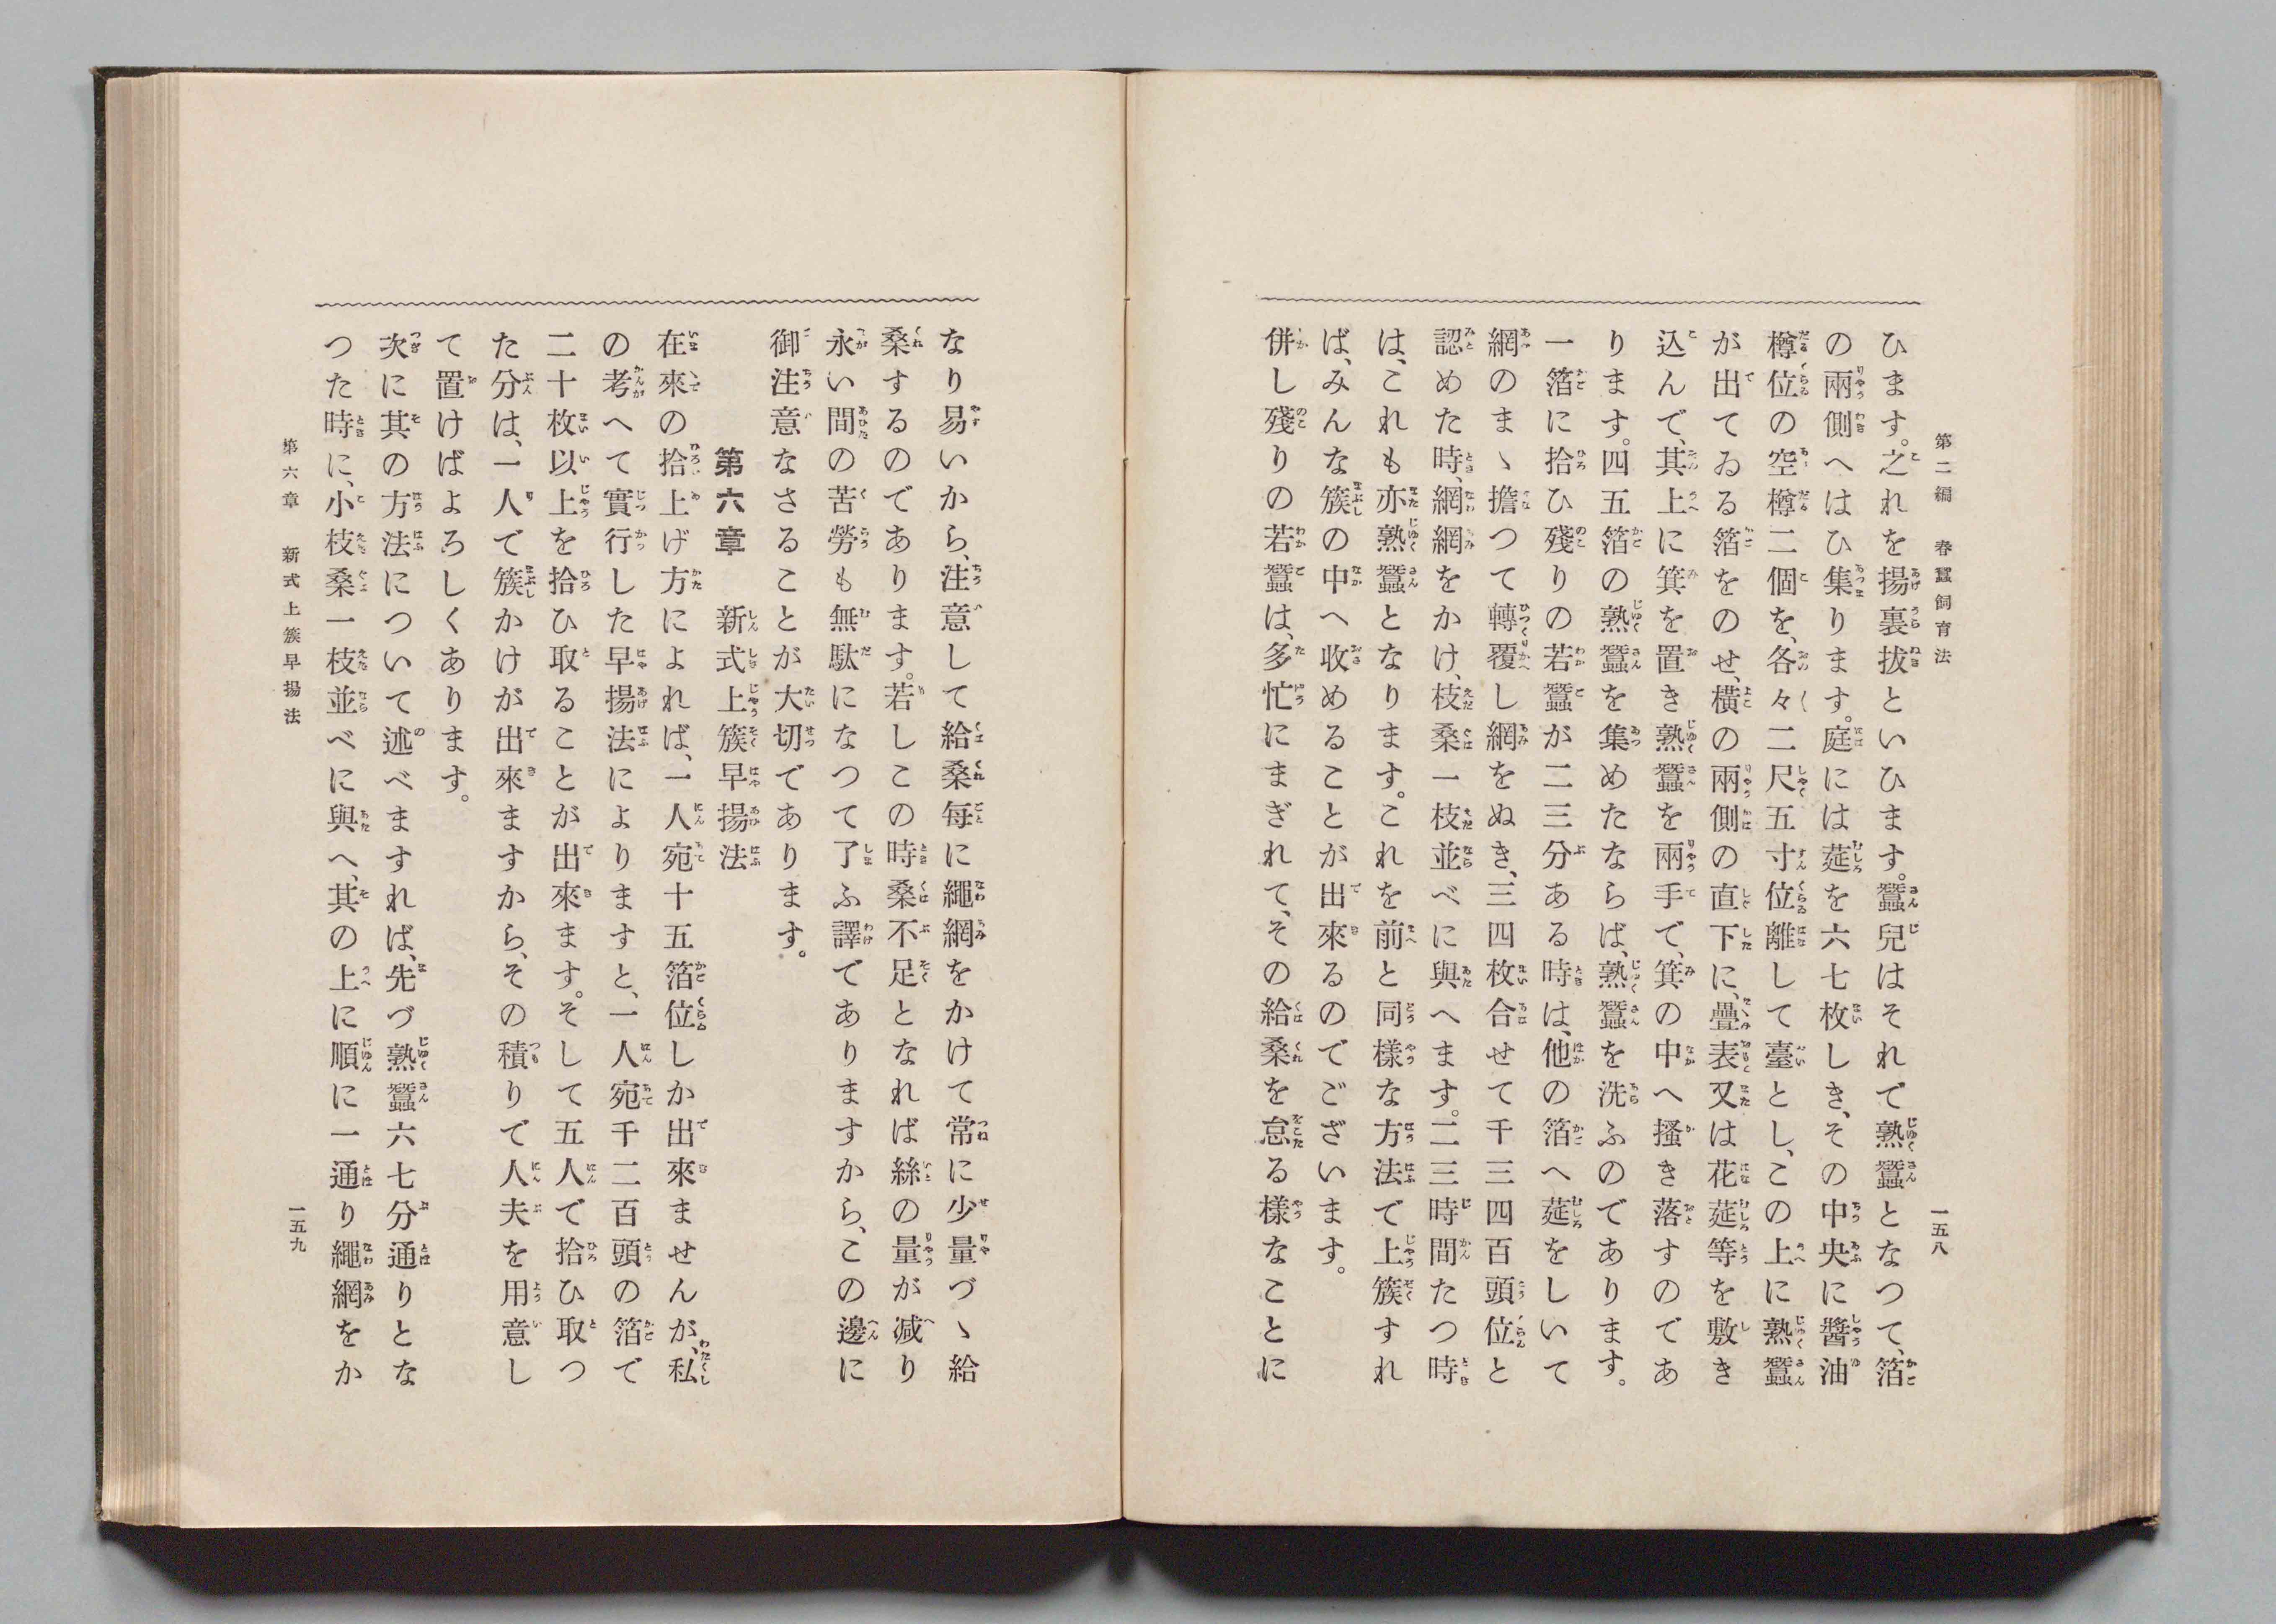 第二編　春蠶飼育法
一五八
ひます。之れを揚裏拔といひます。蠶兒はそれで熟蠶となつて、箔
の兩側へはひ集ります。庭には莚を六七枚しき、その中央に醬油
樽位の空樽二個を、各々二尺五寸位離して臺とし、この上に熟蠶
が出てゐる箔をのせ、橫の兩側の直下に、疊表又は花莚等を敷き
込んで、其上に箕を置き熟蠶を兩手で、箕の中へ搔き落すのであ
ります。四五箔の熟蠶を集めたならば、熟蠶を洗ふのであります。
一箔に拾ひ殘りの若蠶が二三分ある時は、他の箔へ莚をしいて
網のまゝ擔つて轉覆し網をぬき、三四枚合せて千三四百頭位と
認めた時、網網をかけ、枝桑一枝並べに與へます。二三時間たつ時
は、これも亦熟蠶となります。これを前と同樣な方法で上簇すれ
ば、みんな簇の中へ收めることが出來るのでございます。
併し殘りの若蠶は、多忙にまぎれて、その給桑を怠る樣なことに
なり易いから、注意して給桑每に繩網をかけて常に少量づゝ給
桑するのであります。若しこの時桑不足となれば絲の量が減り
永い間の苦勞も無駄になつて了ふ譯でありますから、この邊に
御注意なさることが大切であります。
第六章　新式上簇早揚法
在來の拾上げ方によれば、一人宛十五箔位しか出來ませんが、私
の考へて實行した早揚法によりますと、一人宛千二百頭の箔で
二十枚以上を拾ひ取ることが出來ます。そして五人で拾ひ取つ
た分は、一人で簇かけが出來ますから、その積りで人夫を用意し
て置けばよろしくあります。
次に其の方法について述べますれば、先づ熟蠶六七分通りとな
つた時に、小枝桑一枝並べに與へ、其の上に順に一通り繩網をか
第六章　新式上簇早揚法
一五九